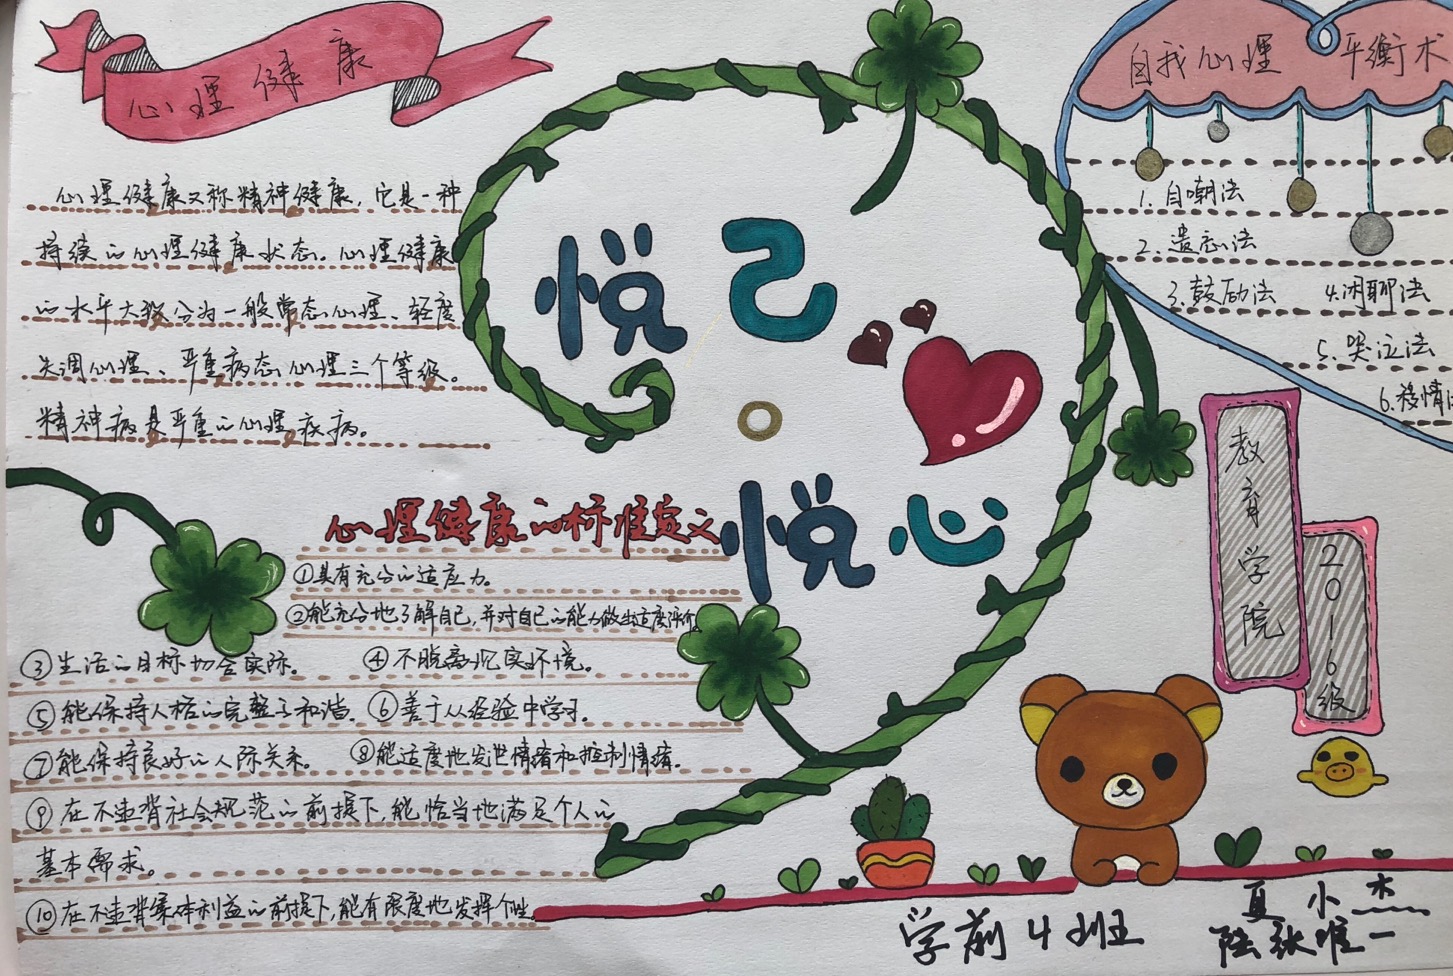 心理健康
心理健康又称精神健康，它是一种
持续的心理健康状态。心理健康
的水平大致分为一般常态心理、轻度
失调心理、严重病态心理三个等级。
精神病是严重的心理疾病。
悦己
悦心
自我心理 平衡术
1.自嘲法
2.遗忘法
3.鼓励法 4.闲聊法
5.哭泣法
6.移情法
教育学院
2016级
心理健康的标准定义
①具有充分的适应力。
②能充分地了解自己，并对自己的能力做出适度评价
③生活的目标切合实际。 ④不脱离现实环境。
⑤能保持人格的完整于和谐。 ⑥善于从经验中学习。
⑦能保持良好的人际关系。 ⑧能适度地发泄情绪和控制情绪。
⑨在不违背社会规范的前提下，能恰当地满足个人的
基本需求。
⑩在不违背集体利益的前提下，能有限度地发挥个性。
学前4班
夏小杰
陆张唯一